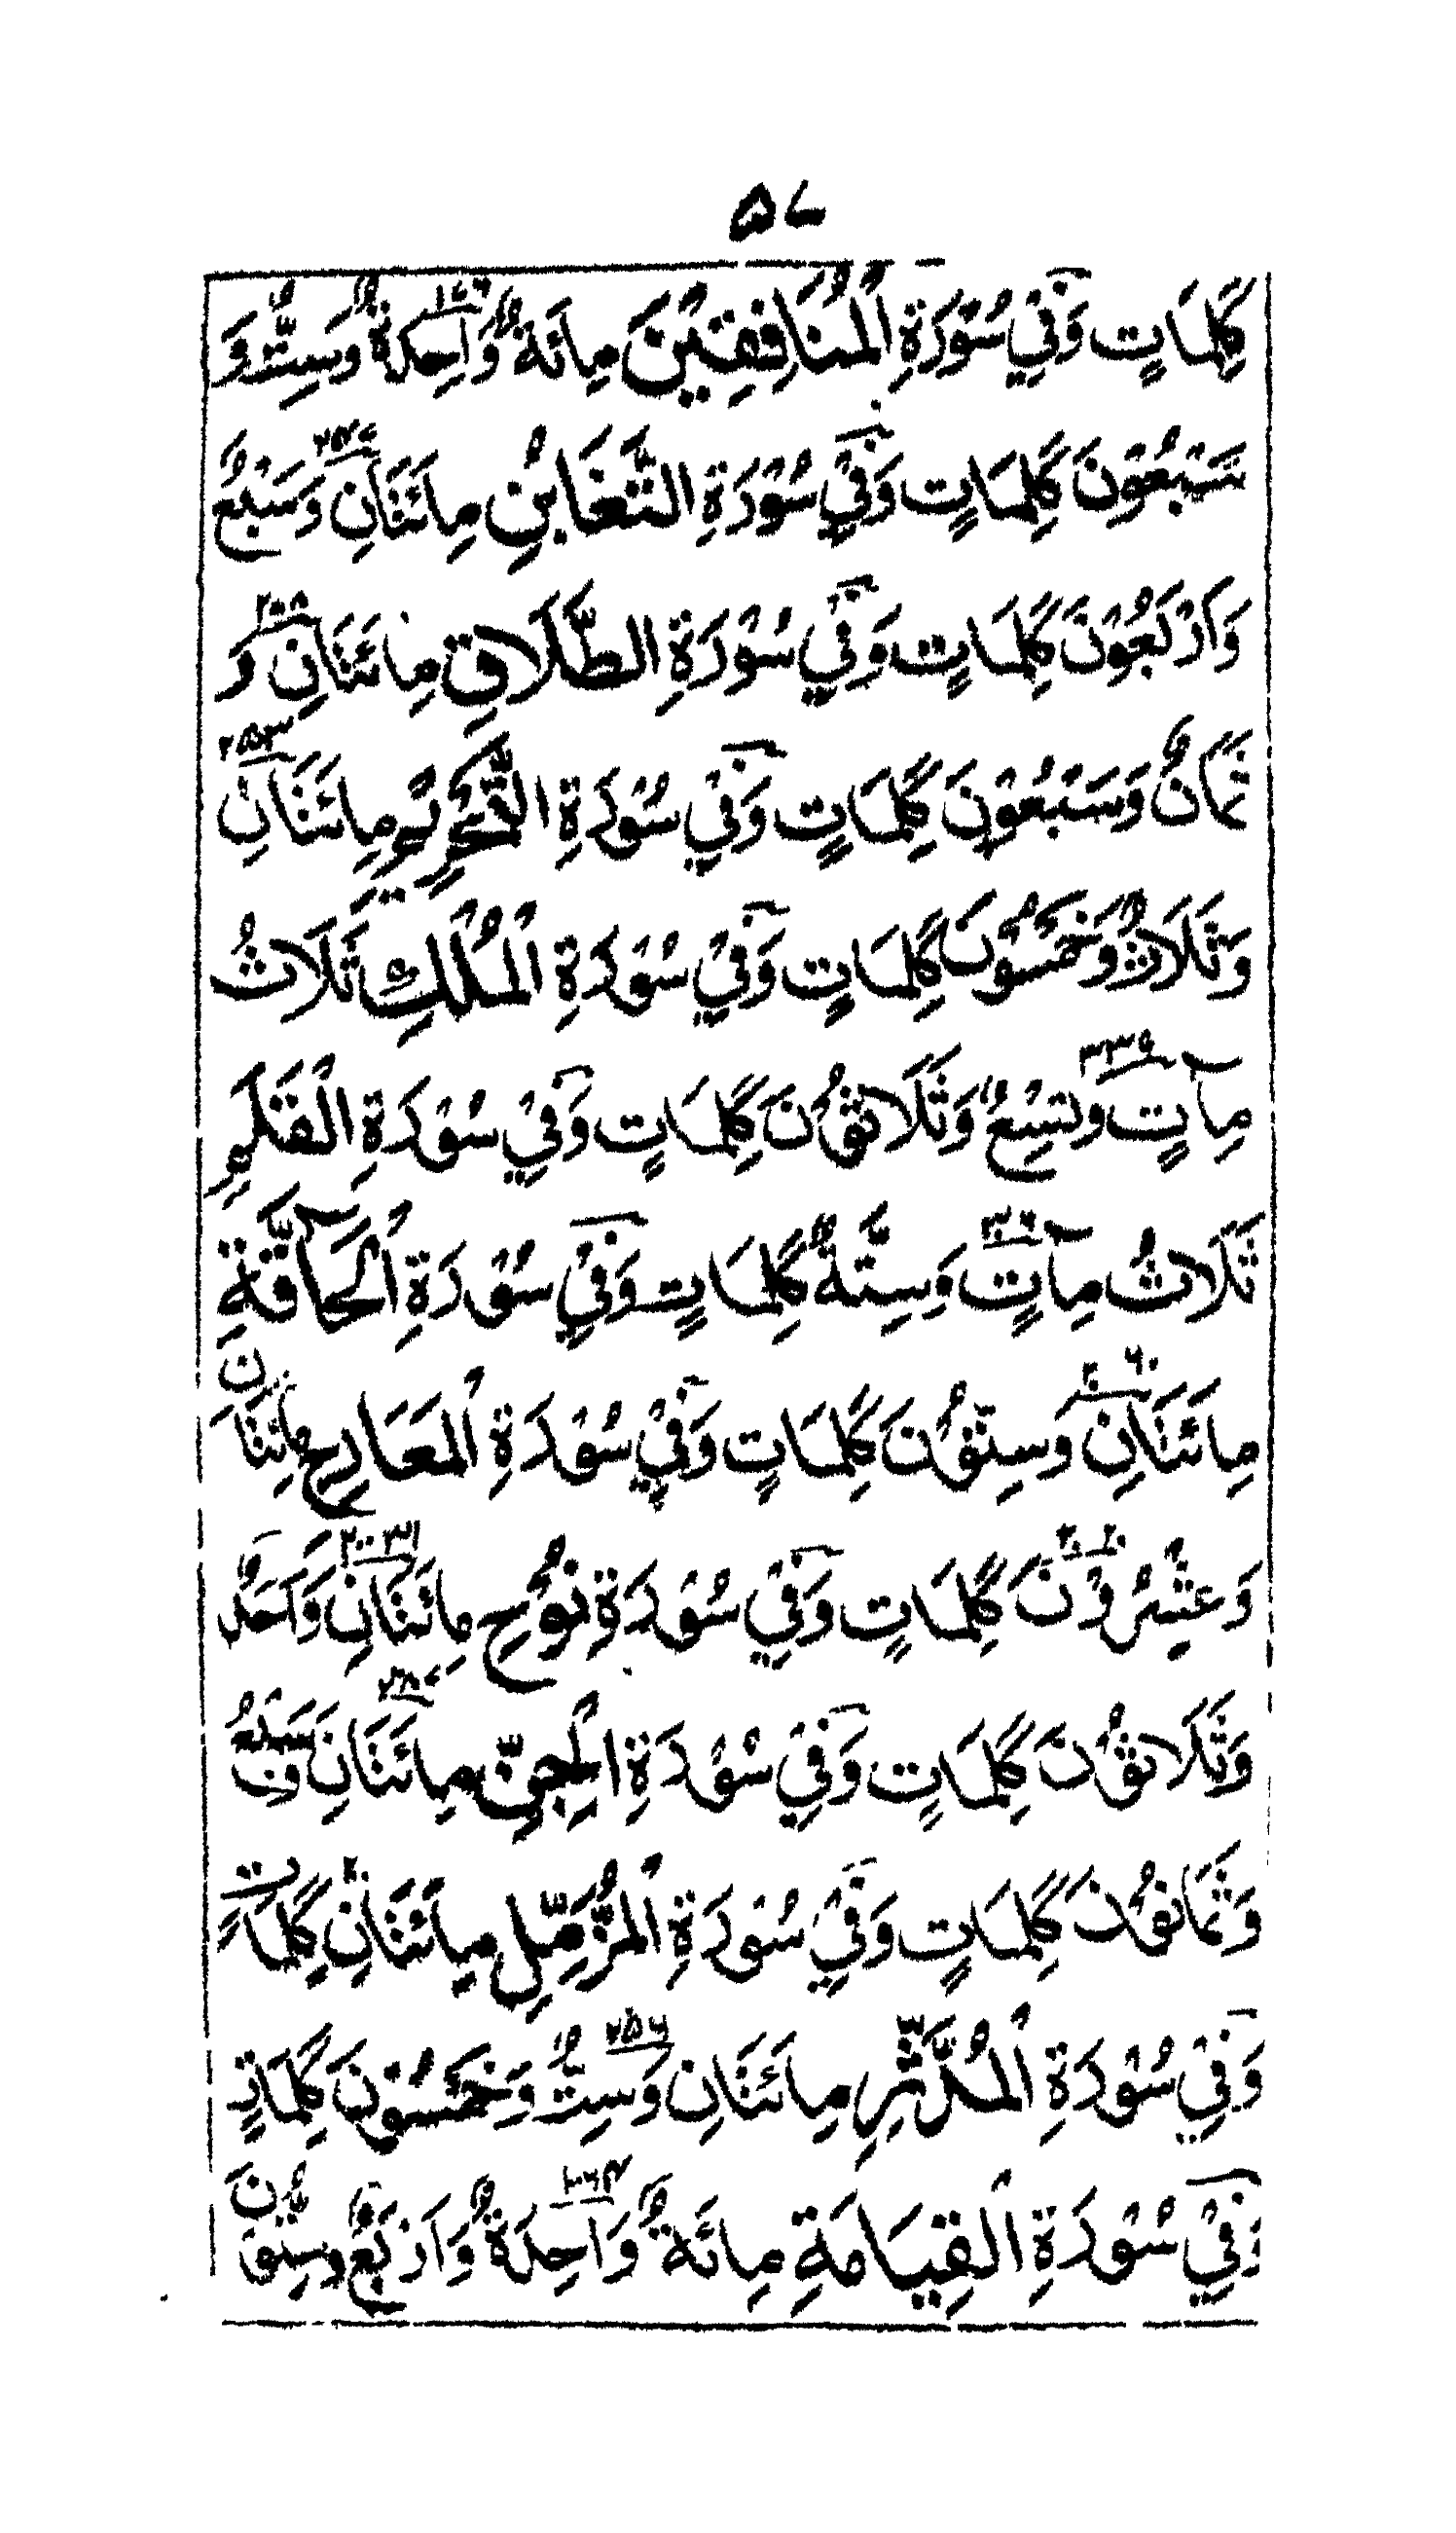 ۵۷
كَلِمَاتٍ وَفِيْ سُوْرَةِ الْمُنَافِقِيْنَ مِائَةٌ وَّاحِدَةٌ وَّسِتٌّ وَّ
سَبْعُوْنَ كَلِمَاتٍ وَفِيْ سُوْرَةِ التَّغَابُنِ مِائَتَانِ وَسَبْعٌ
وَاَرْبَعُوْنَ كَلِمَاتٍ وَفِيْ سُوْرَةِ الطَّلَاقِ مِائَتَانِ وَ
ثَمَانٌ وَسَبْعُوْنَ كَلِمَاتٍ وَفِيْ سُوْرَةِ التَّحْرِيْمِ مِائَتَانِ ۲۵۳
وَثَلَاثٌ وَخَمْسُوْنَ كَلِمَاتٍ وَفِيْ سُوْرَةِ الْمُلْكِ ثَلَاثُ
مِآتٍ وَتِسْعٌ وَثَلَاثُوْنَ كَلِمَاتٍ وَفِيْ سُوْرَةِ الْقَلَمِ
ثَلَاثُ مِآتٍ وَسِتَّةُ كَلِمَاتٍ وَفِيْ سُوْرَةِ الْحَآقَّةِ
مِائَتَانِ وَسِتُّوْنَ كَلِمَاتٍ وَفِيْ سُوْرَةِ الْمَعَارِجِ مِائَتَانِ
وَعِشْرُوْنَ كَلِمَاتٍ وَفِيْ سُوْرَةِ نُوْحٍ مِائَتَانِ وَاَحَدٌ
وَثَلَاثُوْنَ كَلِمَاتٍ وَفِيْ سُوْرَةِ الْجِنِّ مِائَتَانِ سَبْعٌ
وَثَمَانُوْنَ كَلِمَاتٍ وَفِيْ سُوْرَةِ الْمُزَّمِّلِ مِائَتَانِ كَلِمَاتٍ
وَفِيْ سُوْرَةِ الْمُدَّثِّرِ مِائَتَانِ وَسِتٌّ وَخَمْسُوْنَ كَلِمَاتٍ ۲۵۶
وَفِيْ سُوْرَةِ الْقِيَامَةِ مِائَةٌ وَّاحِدَةٌ وَّاَرْبَعٌ وَسِتُّوْنَ